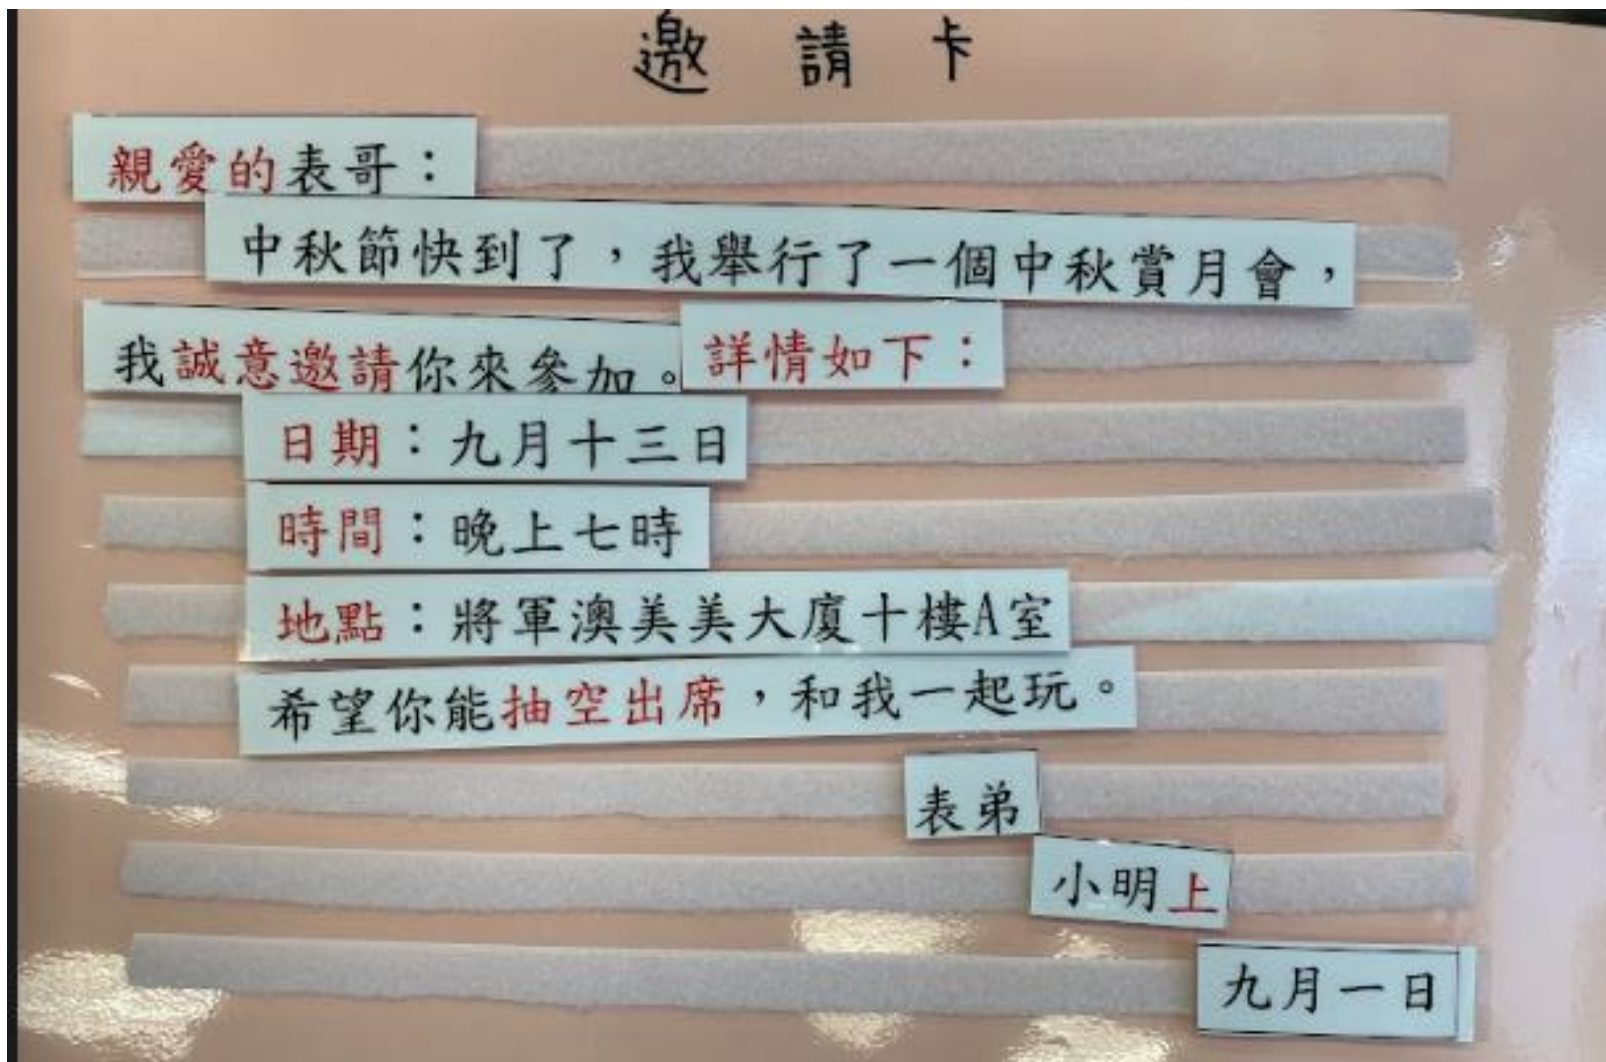 邀請卡
親愛的表哥：
中秋節快到了，我舉行了一個中秋賞月會，
我誠意邀請你來參加。詳情如下：
日期：九月十三日
時間：晚上七時
地點：將軍澳美美大廈十樓A室
希望你能抽空出席，和我一起玩。
表弟
小明上
九月一日